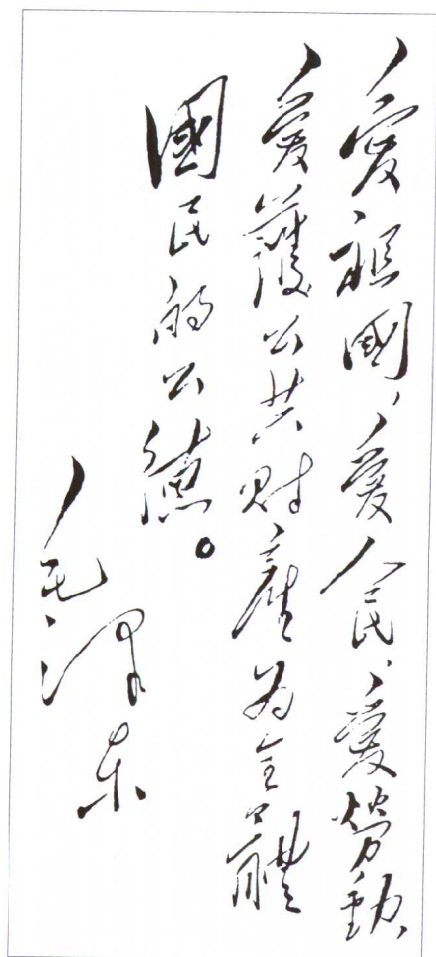 愛祖國，愛人民，愛勞動，
愛護公共財產為全體
國民的公德。
毛澤东